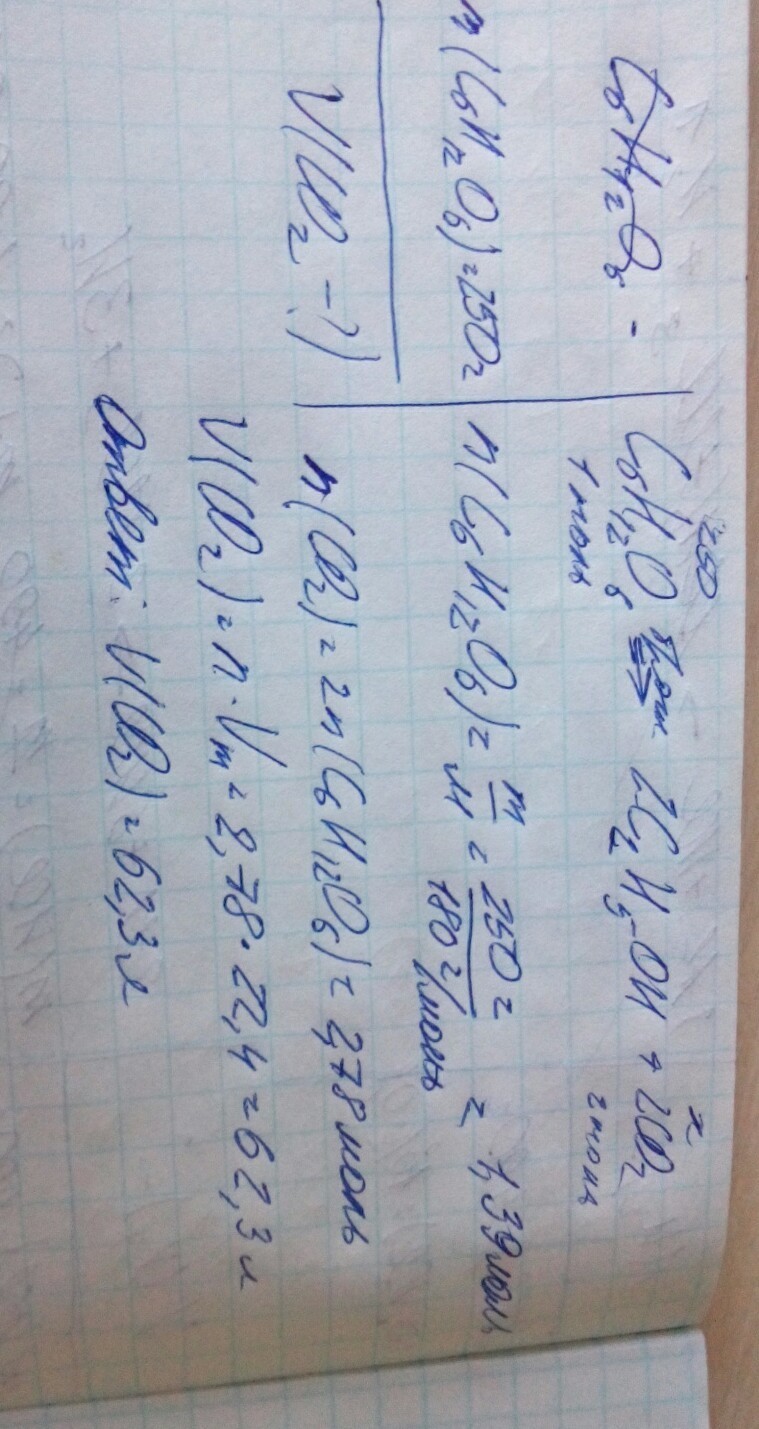 C₆H₁₂O₆ -
m(C₆H₁₂O₆) = 250 г
V(CO₂ - ?)
250 x
C₆H₁₂O₆ ⟶ 2C₂H₅-OH + 2CO₂
1 моль 2 моль
n(C₆H₁₂O₆) = m/M = 250 г / 180 г/моль = 1,39 моль
n(CO₂) = 2n(C₆H₁₂O₆) = 2,78 моль
V(CO₂) = n · Vm = 2,78 · 22,4 = 62,3 л
Ответ: V(CO₂) = 62,3 л